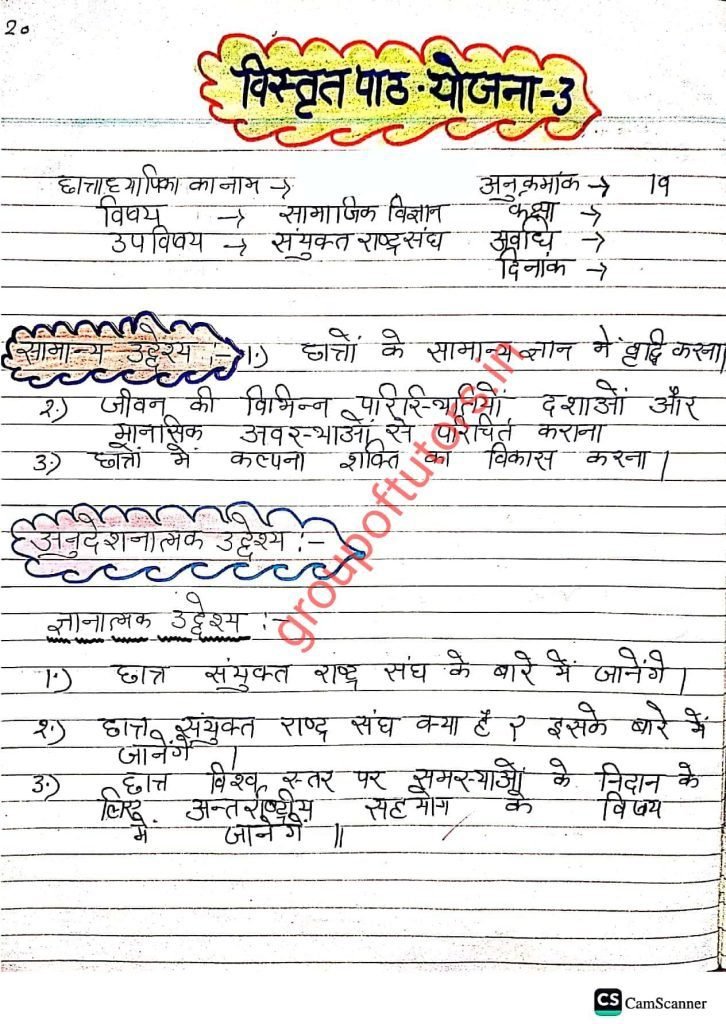 20
विस्तृत पाठ-योजना-3
छात्ताध्यापिका का नाम → अनुक्रमांक → 19
विषय → सामाजिक विज्ञान कक्षा →
उपविषय → संयुक्त राष्ट्र संघ अवधि →
दिनांक →
सामान्य उद्देश्य :- 1.) छात्तों के सामान्य ज्ञान में वृद्धि करना।
2.) जीवन की विभिन्न परिस्थितियों दशाओं और
मानसिक अवस्थाओं से परिचित कराना
3.) छात्तों में कल्पना शक्ति का विकास करना।
अनुदेशनात्मक उद्देश्य :-
ज्ञानात्मक उद्देश्य :-
1.) छात्त संयुक्त राष्ट्र संघ के बारे में जानेंगे।
2.) छात्त संयुक्त राष्ट्र संघ क्या है ? इसके बारे में
जानेंगें ।
3.) छात्त विश्व स्तर पर समस्याओं के निदान के
लिए अन्तर्राष्ट्रीय सहयोग के विषय
में जानेगें ॥
groupoftutors.in
CS CamScanner